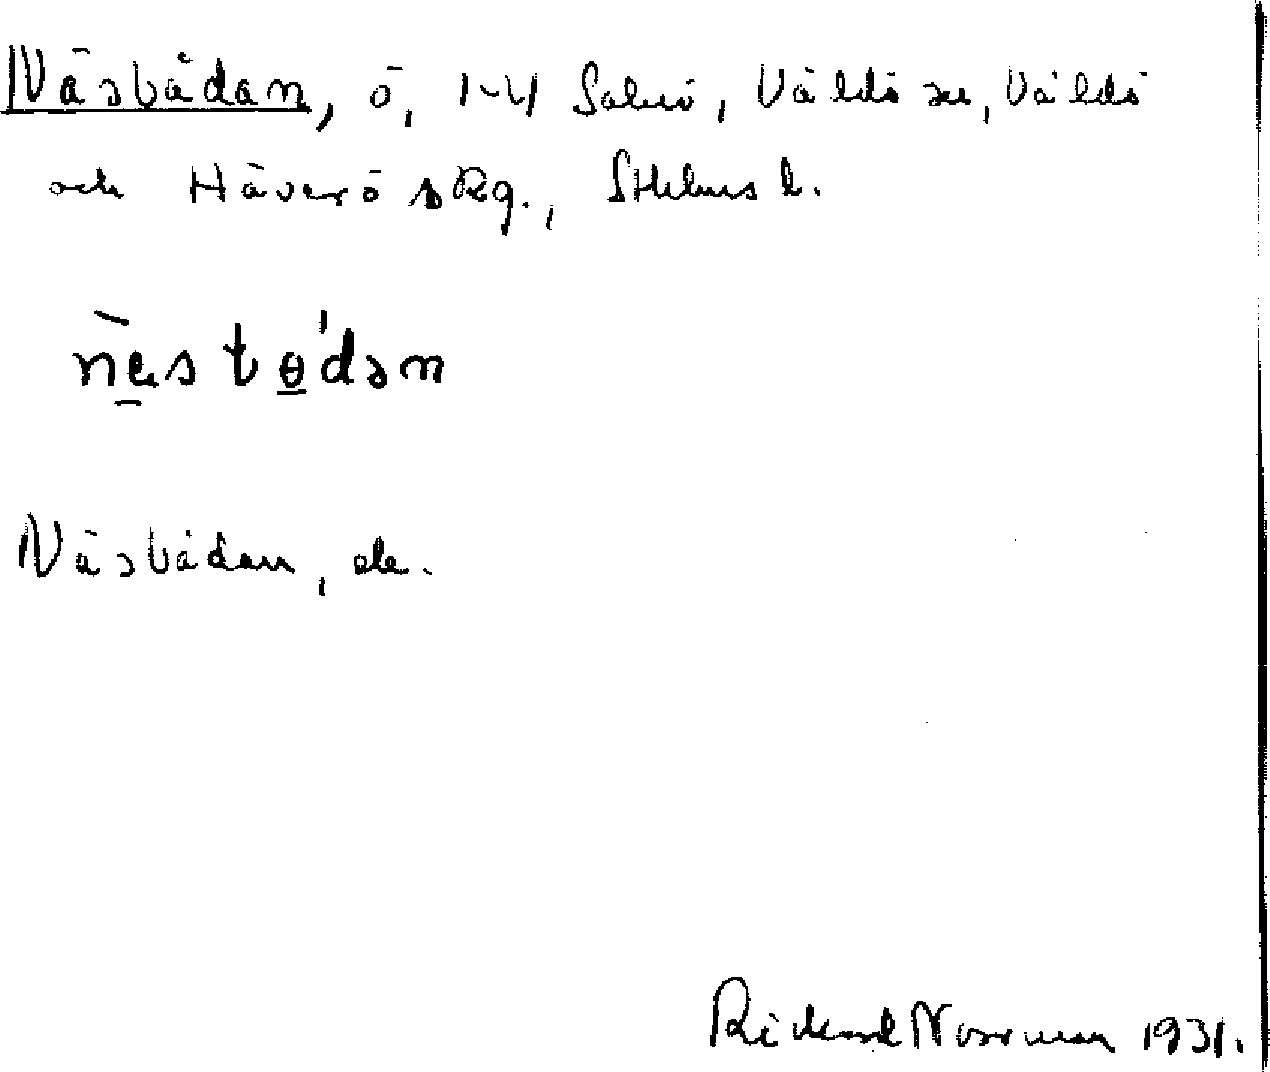 Näsbådan, ö, 1-4 Salnö, Väddö sn, Väddö
och Häverö skg., Sthlms l.
Näsbådan, ek.
Rickard Norrman 1931.